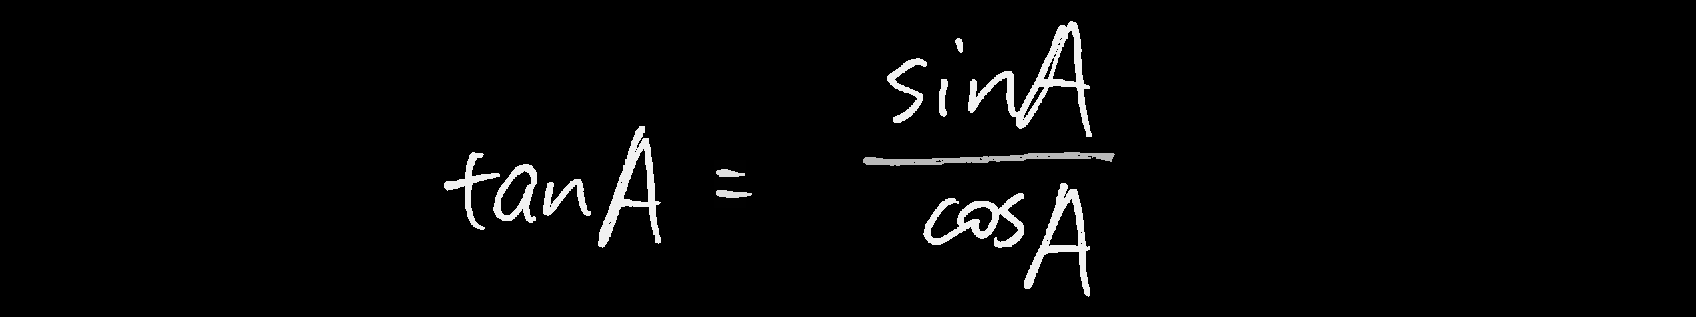 tanA = sinA / cosA